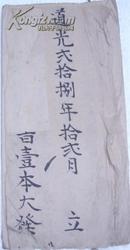 道光弍拾捌年拾弍月 立
百壹本大發